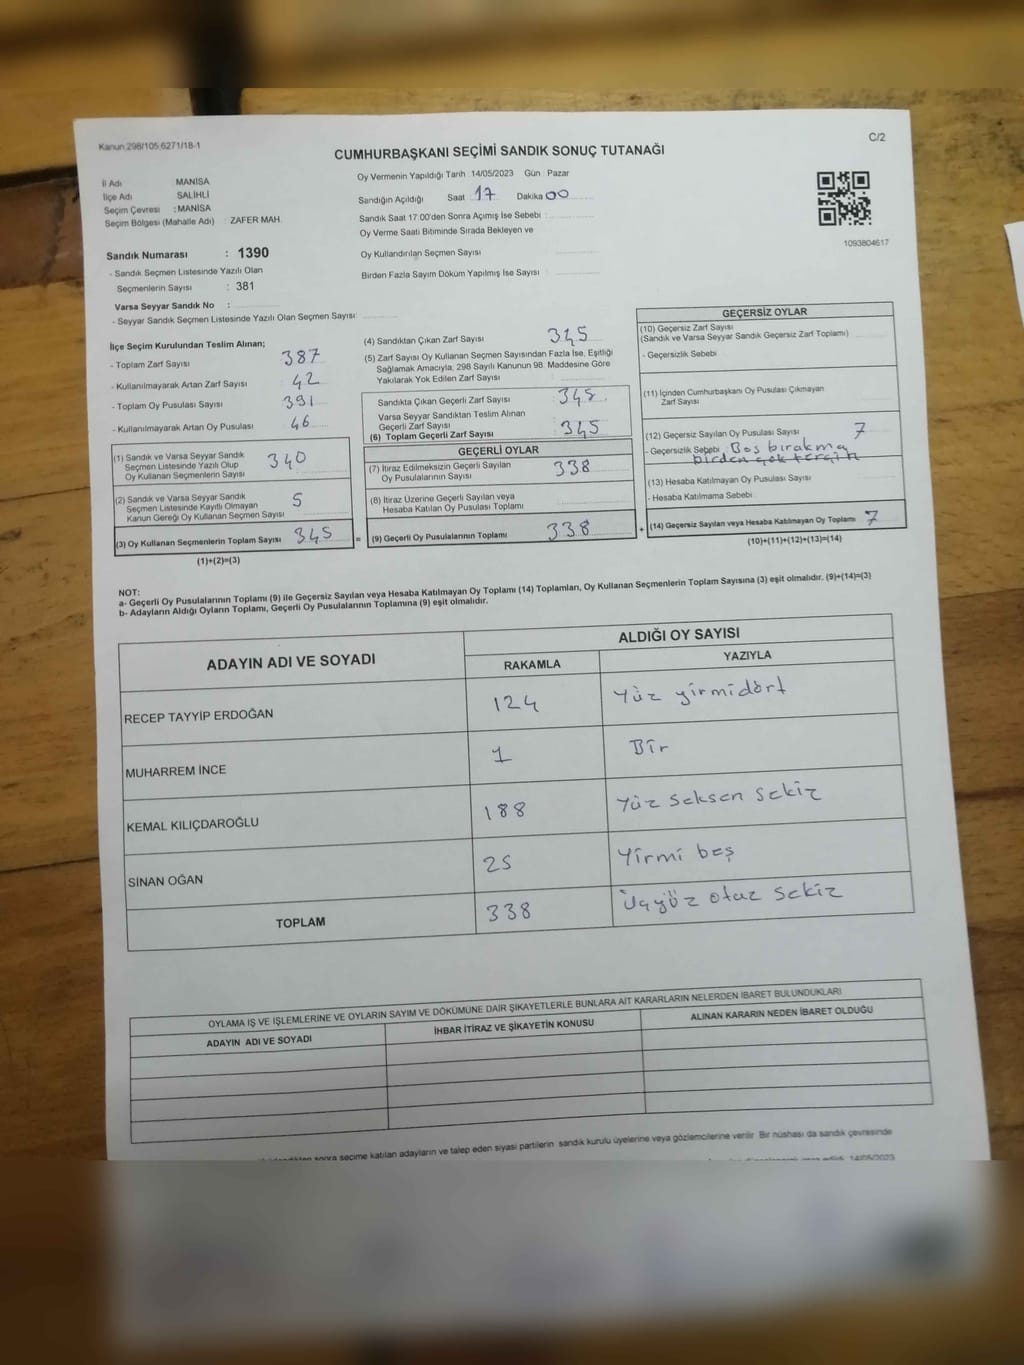 Kanun 298/105 6271/18-1
C/2
CUMHURBAŞKANI SEÇİMİ SANDIK SONUÇ TUTANAĞI
İl Adı MANİSA
İlçe Adı SALİHLİ
Seçim Çevresi : MANİSA
Seçim Bölgesi (Mahalle Adı) : ZAFER MAH.
Sandık Numarası : 1390
- Sandık Seçmen Listesinde Yazılı Olan
Seçmenlerin Sayısı : 381
Varsa Seyyar Sandık No :
- Seyyar Sandık Seçmen Listesinde Yazılı Olan Seçmen Sayısı:
Oy Vermenin Yapıldığı Tarih 14/05/2023 Gün Pazar
Sandığın Açıldığı Saat 17 Dakika 00
Sandık Saat 17:00'den Sonra Açımış İse Sebebi :
Oy Verme Saati Bitiminde Sırada Bekleyen ve
Oy Kullandırılan Seçmen Sayısı
Birden Fazla Sayım Döküm Yapılmış İse Sayısı :
1093804617
İlçe Seçim Kurulundan Teslim Alınan;
- Toplam Zarf Sayısı 387
- Kullanılmayarak Artan Zarf Sayısı 42
- Toplam Oy Pusulası Sayısı 391
- Kullanılmayarak Artan Oy Pusulası 46
(1) Sandık ve Varsa Seyyar Sandık
Seçmen Listesinde Yazılı Olup
Oy Kullanan Seçmenlerin Sayısı 340
(2) Sandık ve Varsa Seyyar Sandık
Seçmen Listesinde Kayıtlı Olmayan
Kanun Gereği Oy Kullanan Seçmen Sayısı 5
(3) Oy Kullanan Seçmenlerin Toplam Sayısı 345 =
(1)+(2)=(3)
(4) Sandıktan Çıkan Zarf Sayısı 345
(5) Zarf Sayısı Oy Kullanan Seçmen Sayısından Fazla İse, Eşitliği
Sağlamak Amacıyla, 298 Sayılı Kanunun 98. Maddesine Göre
Yakılarak Yok Edilen Zarf Sayısı
Sandıkta Çıkan Geçerli Zarf Sayısı 345
Varsa Seyyar Sandıktan Teslim Alınan
Geçerli Zarf Sayısı
(6) Toplam Geçerli Zarf Sayısı 345
GEÇERLİ OYLAR
(7) İtiraz Edilmeksizin Geçerli Sayılan
Oy Pusulalarının Sayısı 338
(8) İtiraz Üzerine Geçerli Sayılan veya
Hesaba Katılan Oy Pusulası Toplamı
(9) Geçerli Oy Pusulalarının Toplamı 338 +
GEÇERSİZ OYLAR
(10) Geçersiz Zarf Sayısı
(Sandık ve Varsa Seyyar Sandık Geçersiz Zarf Toplamı)
- Geçersizlik Sebebi
(11) İçinden Cumhurbaşkanı Oy Pusulası Çıkmayan
Zarf Sayısı
(12) Geçersiz Sayılan Oy Pusulası Sayısı 7
- Geçersizlik Sebebi Boş bırakma
birden çok tercih
(13) Hesaba Katılmayan Oy Pusulası Sayısı
- Hesaba Katılmama Sebebi
(14) Geçersiz Sayılan veya Hesaba Katılmayan Oy Toplamı 7
(10)+(11)+(12)+(13)=(14)
NOT:
a- Geçerli Oy Pusulalarının Toplamı (9) ile Geçersiz Sayılan veya Hesaba Katılmayan Oy Toplamı (14) Toplamları, Oy Kullanan Seçmenlerin Toplam Sayısına (3) eşit olmalıdır. (9)+(14)=(3)
b- Adayların Aldığı Oyların Toplamı, Geçerli Oy Pusulalarının Toplamına (9) eşit olmalıdır.
ADAYIN ADI VE SOYADI
ALDIĞI OY SAYISI
RAKAMLA YAZIYLA
RECEP TAYYİP ERDOĞAN 124 Yüz yirmidört
MUHARREM İNCE 1 Bir
KEMAL KILIÇDAROĞLU 188 Yüz seksen sekiz
SİNAN OĞAN 25 Yirmi beş
TOPLAM 338 Üçyüz otuz sekiz
OYLAMA İŞ VE İŞLEMLERİNE VE OYLARIN SAYIM VE DÖKÜMÜNE DAİR ŞİKAYETLERLE BUNLARA AİT KARARLARIN NELERDEN İBARET BULUNDUKLARI
ADAYIN ADI VE SOYADI İHBAR İTİRAZ VE ŞİKAYETİN KONUSU ALINAN KARARIN NEDEN İBARET OLDUĞU
sonra seçime katılan adayların ve talep eden siyasi partilerin sandık kurulu üyelerine veya gözlemcilerine verilir Bir nüshası da sandık çevresinde
14/05/2023